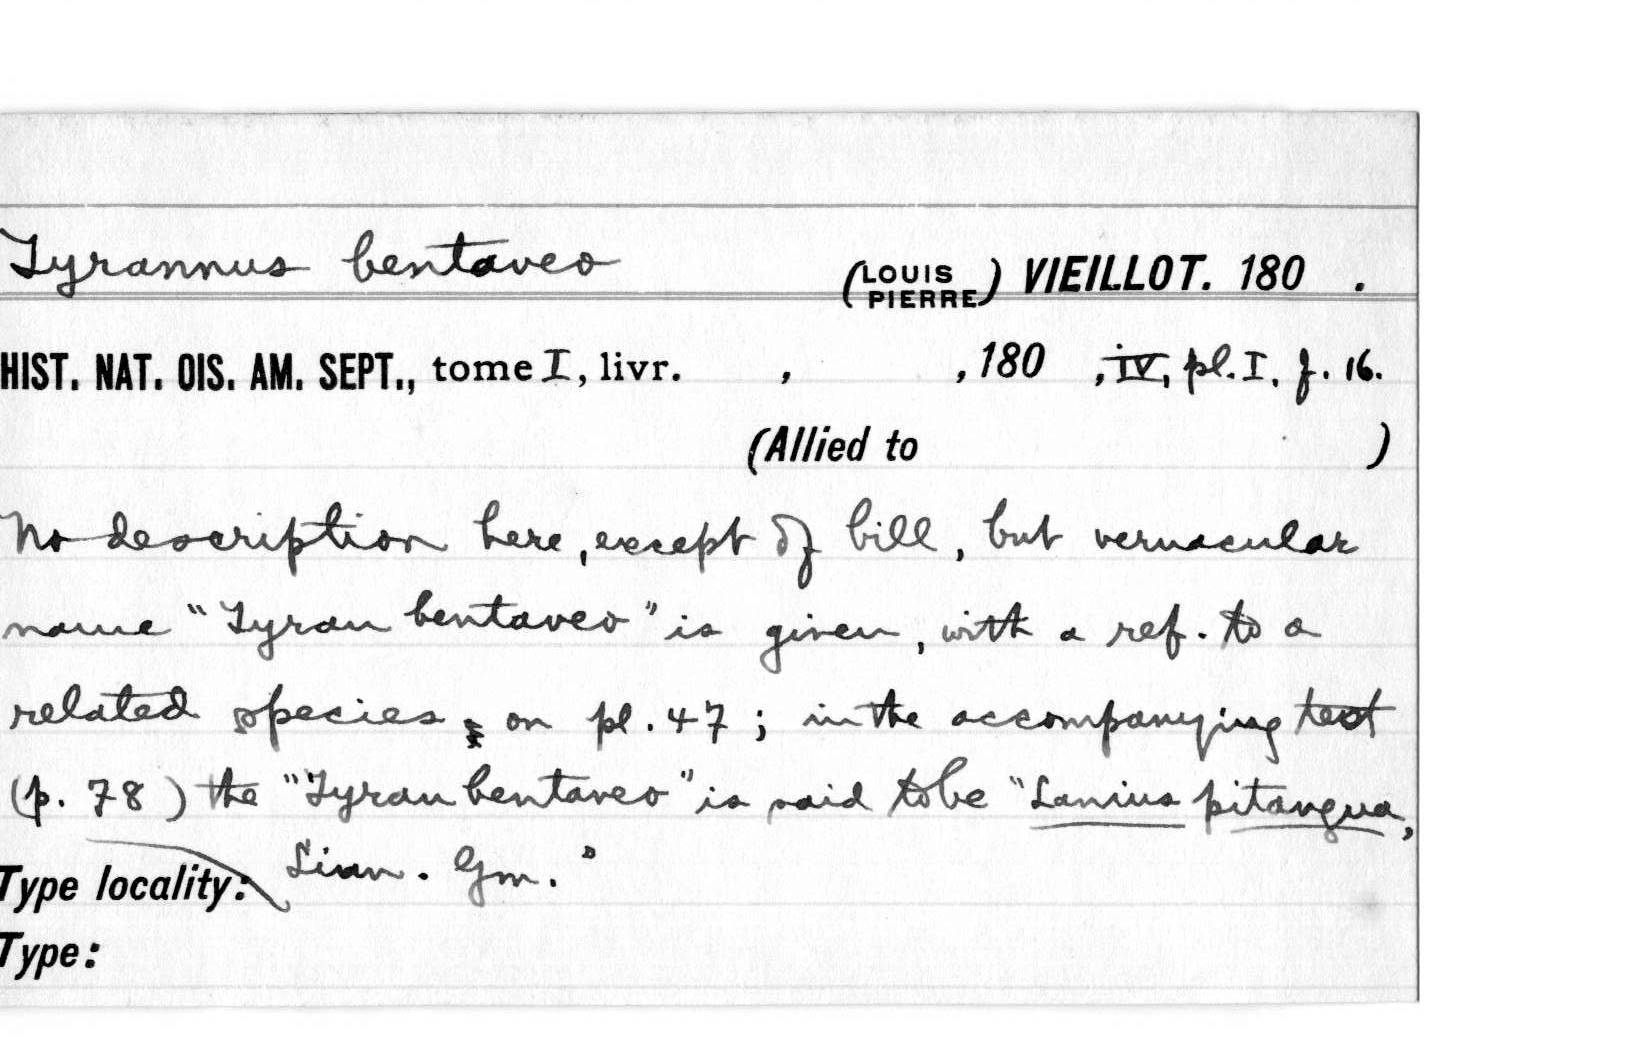 Tyrannus bentaveo (LOUIS PIERRE) VIEILLOT. 180 .
HIST. NAT. OIS. AM. SEPT., tome I, livr. , , 180 , iv, pl. I. f. 16.
(Allied to )
No description here, except of bill, but vernacular
name "Tyran bentaveo" is given, with a ref. to a
related species on pl. 47; in the accompanying text
(p. 78) the "Tyran bentaveo" is said to be "Lanius pitangua,
Linn. Gm."
Type locality:
Type: